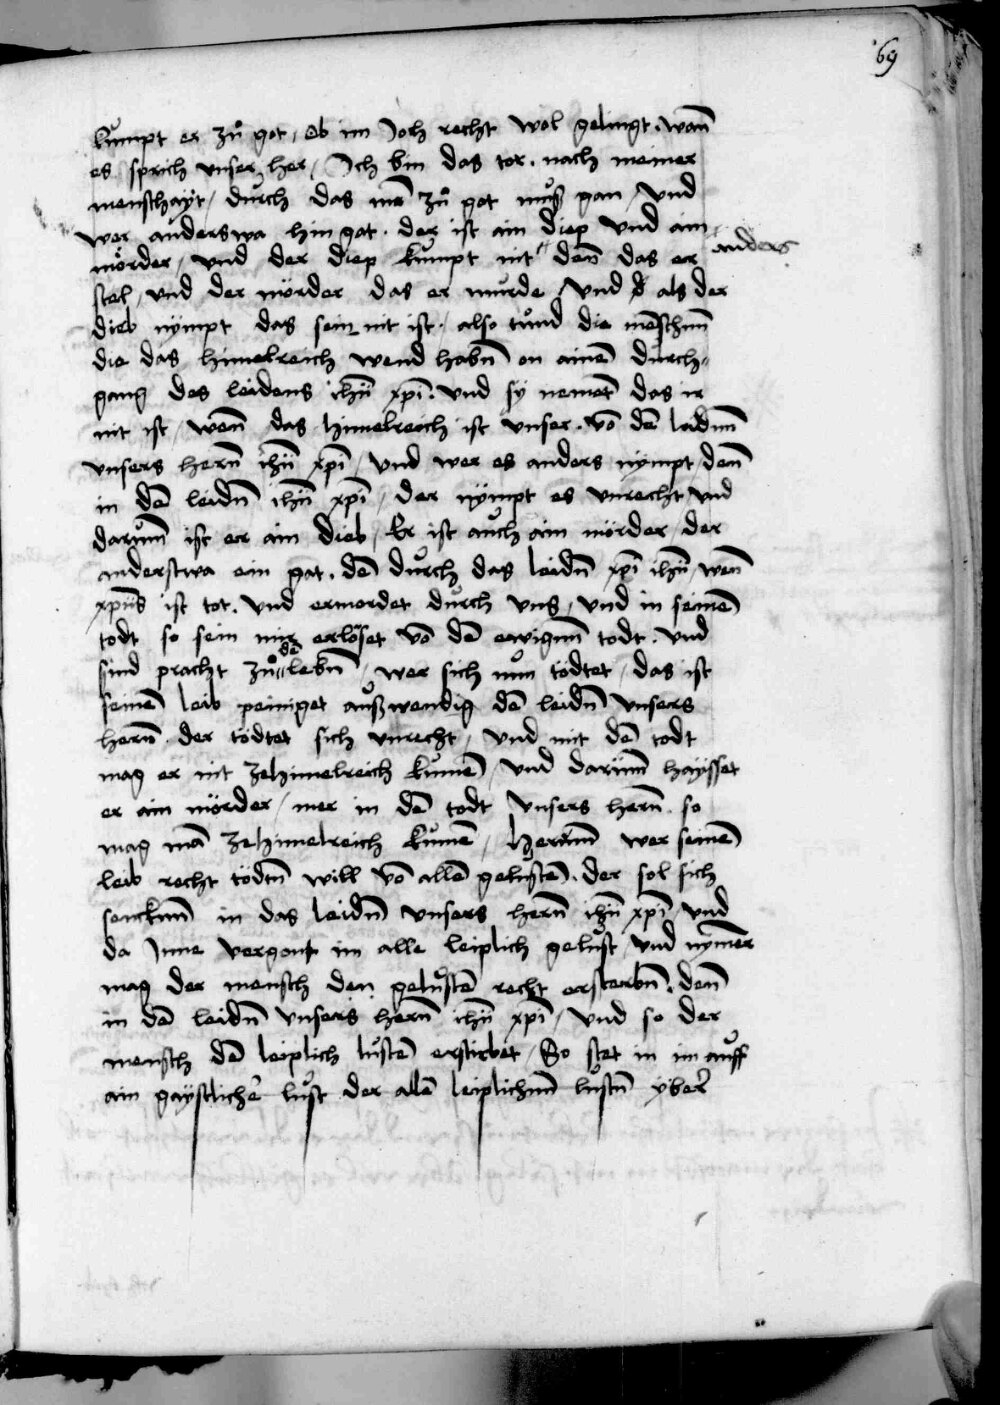 69
kumpt er zů got, ob im Joch recht wol gelingt. wan̄
es sprich vnser her, Ich bin das tor. nach meiner
menschayt, durch das mā zů got muß gan, vnd
wer anderswa hin gat. der ist ain diep vnd ain
mörder, vnd der diep kumpt nit " den̄ das er anders
stel, vnd der mörder das er murde, vnd als der
dieb nÿmpt das sein nit ist, also tůnd die mēschnn̄
die das himelreich wend habn̄ on ainē durch-
gang des leidens ihū xpī. vnd sy nemēt das ir
nit ist, wen̄ das himelreich ist vnser. vō dē lidnn̄
vnsers hern̄ ihū xpī, vnd wer es anders nÿmpt, den̄
in dē leidn̄ ihū xpī, der nÿmpt es vnrecht, vnd
darum̄ ist er ain dieb, Er ist auch ain mörder, der
anderstwa ein gat. dē durch das leidn̄ xpī ihū, wen̄
xpūs ist tot. vnd ermordet durch vns, vnd in seinē
todt so sein mir erlöset vō dē ewignn̄ todt. vnd
sind pracht zů dē lebn̄, wer sich nun tödtet, das ist
seinē leib peiniget außwendig dē leidn̄ vnsers
hern̄. der tödtet sich vnrecht, vnd mit dē todt
mag er nit zehimelreich kumē, vnd darum̄ haysset
er ain mörder, mer in dē todt vnsers hern̄. so
mag mā zehimelreich kumē, herum̄ wer seinē
leib recht tödtn̄ will vō allē gelustē. der sol sich
sencknn̄ in das leidn̄ vnsers hern̄ ihū xpī, vnd
da Inne vergont im alle leiplich gelust, vnd nymer
mag der mensch den gelustē recht ersterbn̄. den̄
in dē leidn̄ vnsers hern̄ ihū xpī, vnd so der
mensch dē leiplich lustē erstirbet, So stet in im auff
ain gaystlicher lust der allē leiplichnn̄ lustn̄ ÿber